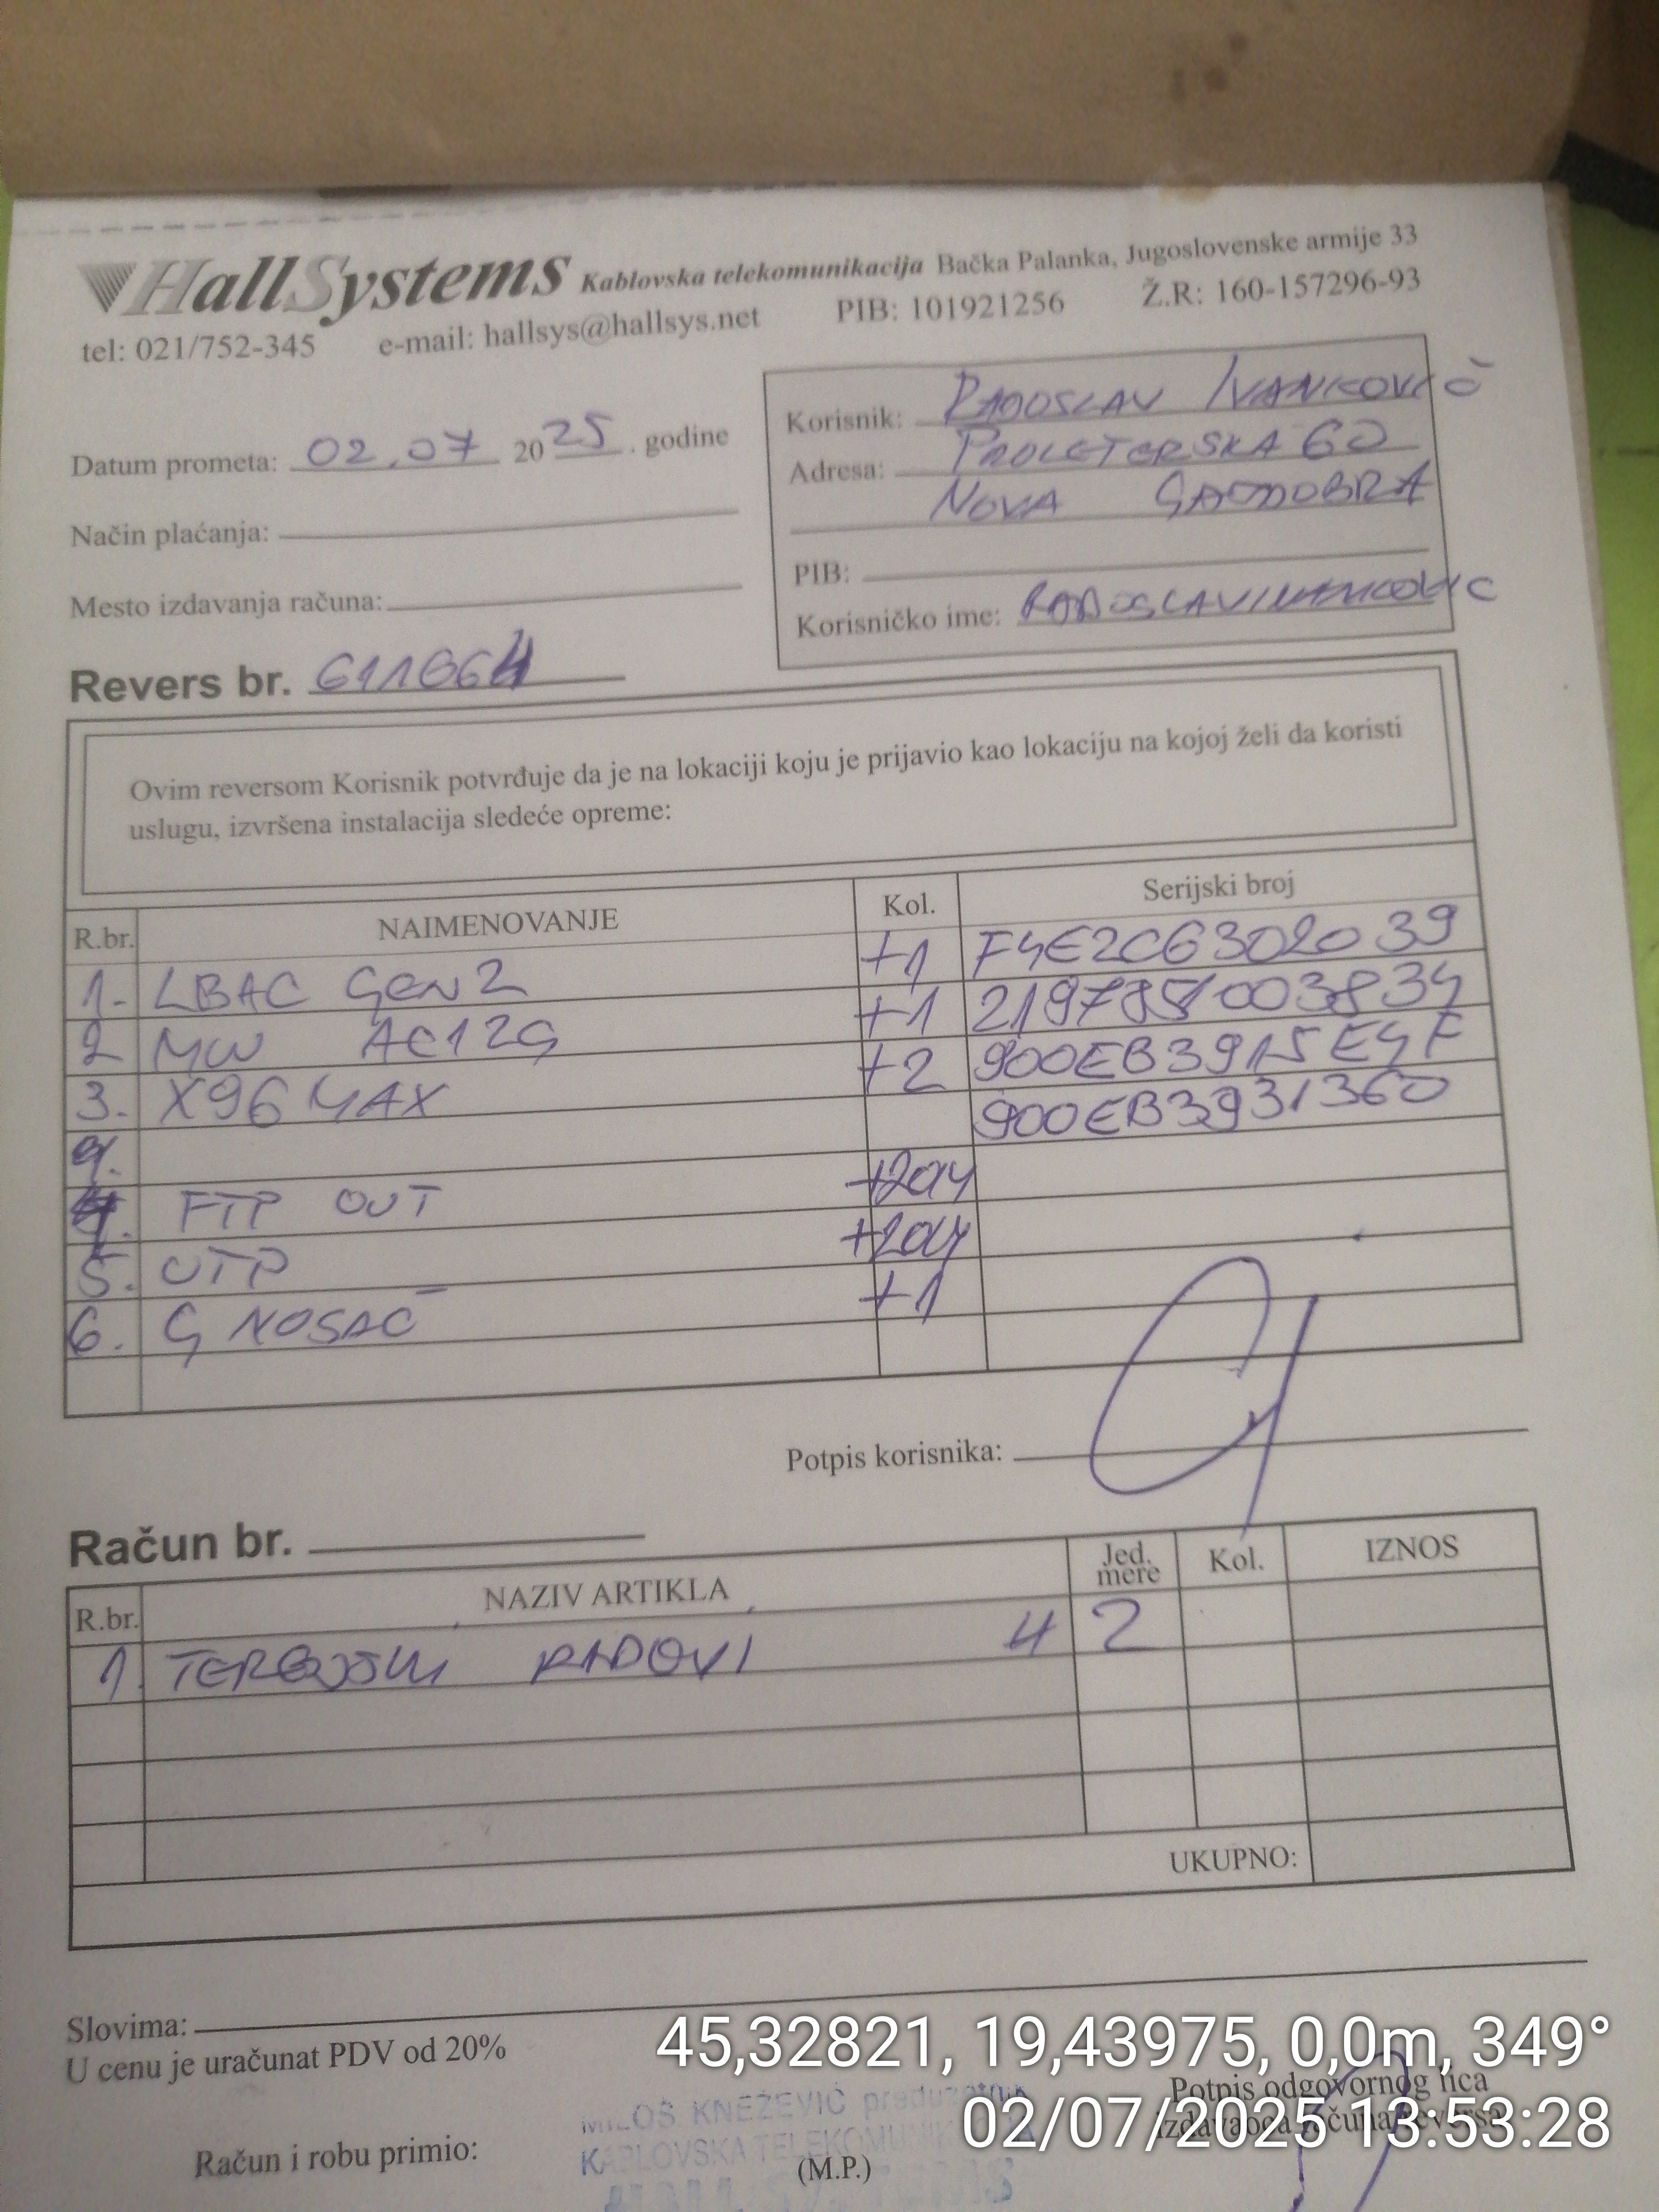 HallSystems Kablovska telekomunikacija Bačka Palanka, Jugoslovenske armije 33
tel: 021/752-345 e-mail: hallsys@hallsys.net PIB: 101921256 Ž.R: 160-157296-93
Datum prometa: 02.07 2025. godine
Način plaćanja:
Mesto izdavanja računa:
Korisnik: RADOSLAV IVANKOVIĆ
Adresa: PROLETERSKA 60
NOVA GAJDOBRA
PIB:
Korisničko ime: RADOSLAVIVANKOVIC
Revers br. 611664
Ovim reversom Korisnik potvrđuje da je na lokaciji koju je prijavio kao lokaciju na kojoj želi da koristi
uslugu, izvršena instalacija sledeće opreme:
R.br. NAIMENOVANJE Kol. Serijski broj
1. LBAC GEN2 +1 F4E2C6302039
2 MW AC12G +1
3. X96 MAX +2 900EB3915E4F
900EB3931360
4. FTP OUT +20M
5. UTP +20M
6. G NOSAČ +1
Potpis korisnika:
Račun br.
R.br. NAZIV ARTIKLA Jed. mere Kol. IZNOS
1. RADOVI 4 2
UKUPNO:
Slovima:
U cenu je uračunat PDV od 20%
45,32821, 19,43975, 0,0m, 349°
Potpis odgovornog lica
02/07/2025 13:53:28
MILOŠ KNEŽEVIĆ preduzetnik
KABLOVSKA
Račun i robu primio:
(M.P.)